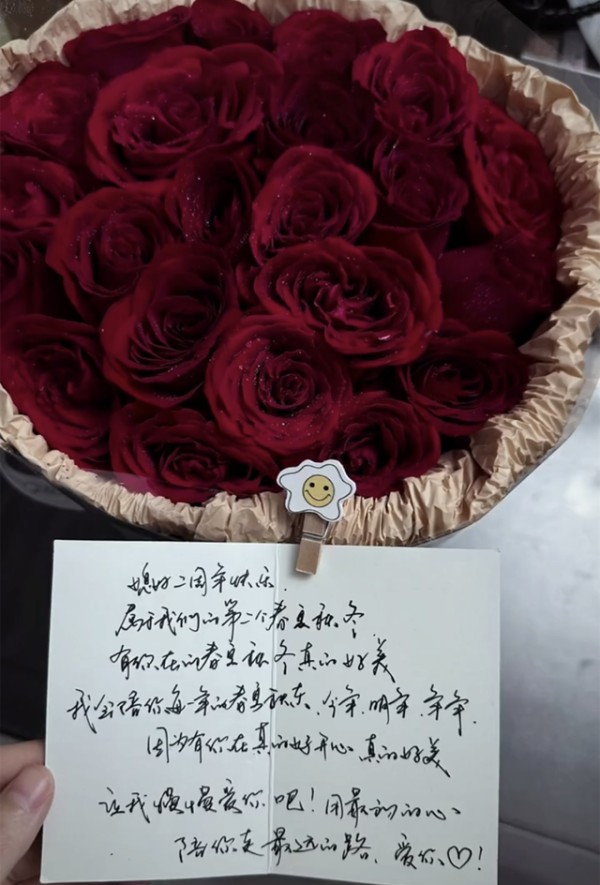 媳妇二周年快乐.
属于我们的第二个春夏秋冬
有你在的春夏秋冬真的好美
我会陪你每一年的春夏秋冬、今年、明年、年年.
因为有你在真的好开心 真的好美
让我慢慢爱你吧！用最初的心、
陪你走最远的路、爱你♡！